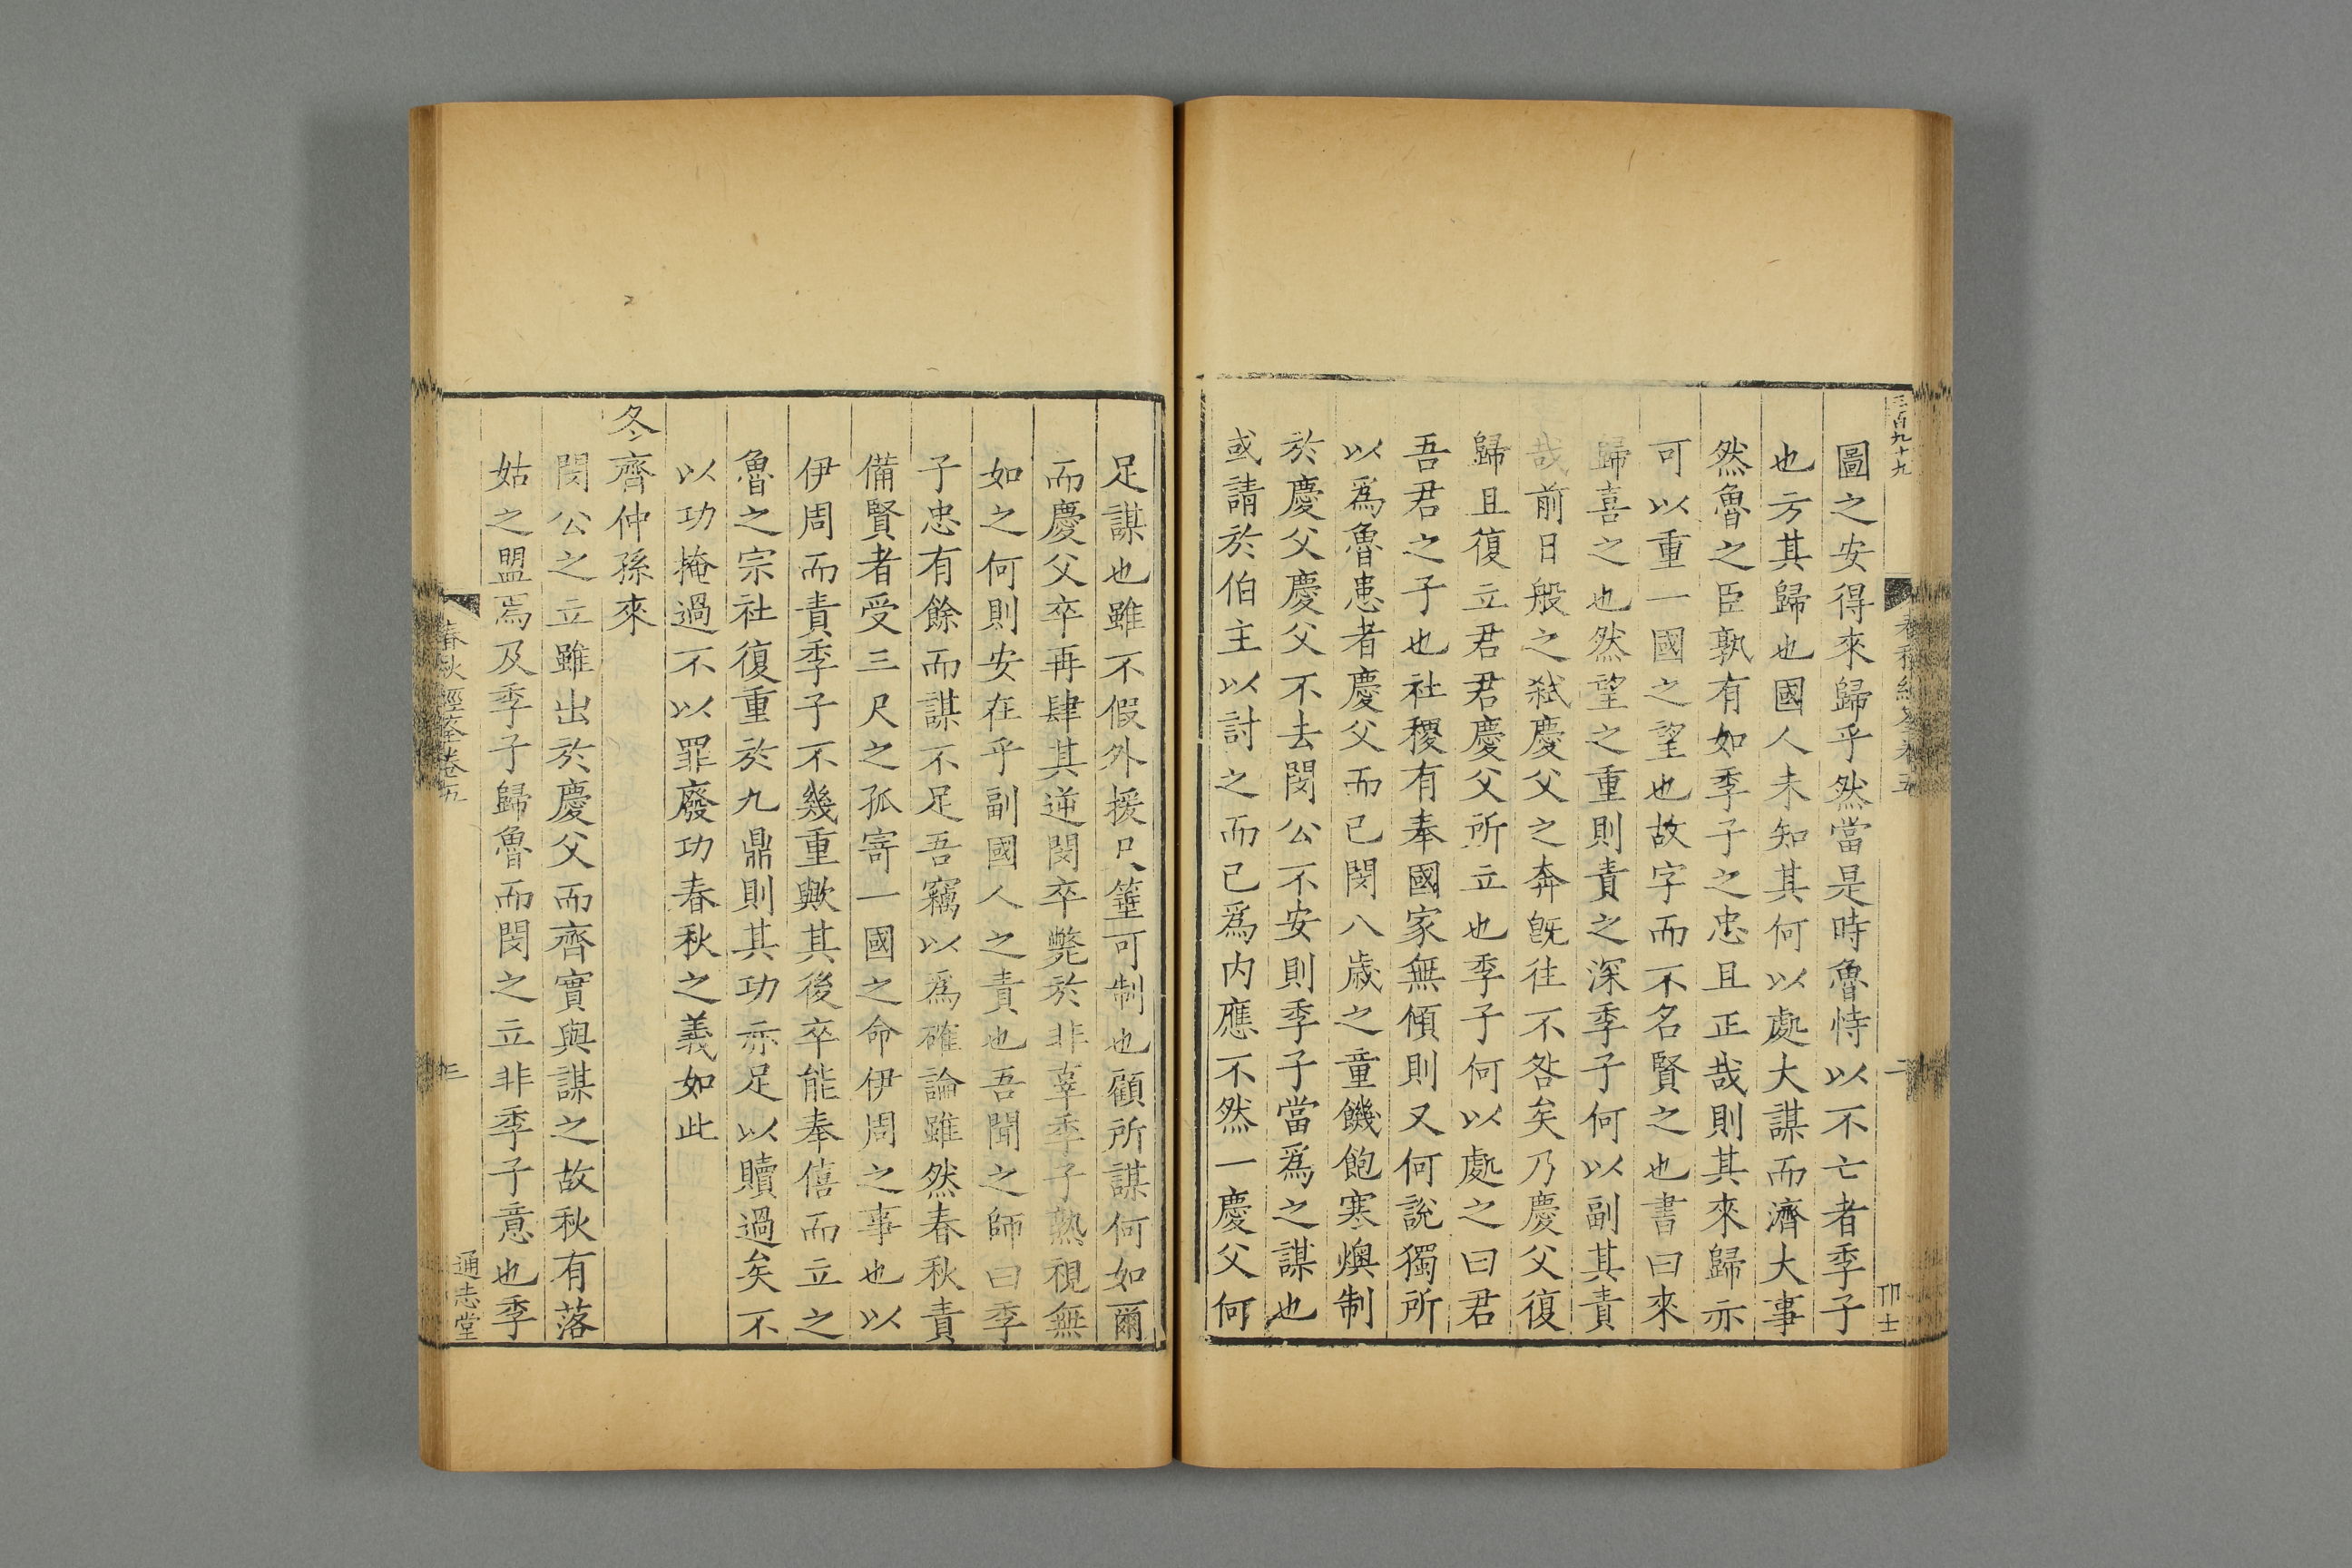 三百九十九
春秋經筌卷五
二
圖之安得來歸乎然當是時魯恃以不亡者季子
也方其歸也國人未知其何以處大謀而濟大事
然魯之臣孰有如季子之忠且正哉則其來歸亦
可以重一國之望也故字而不名賢之也書曰來
歸喜之也然望之重則責之深季子何以副其責
哉前日般之弒慶父之奔旣往不咎矣乃慶父復
歸且復立君君慶父所立也季子何以處之曰君
吾君之子也社稷有奉國家無傾則又何說獨所
以爲魯患者慶父而已閔八歲之童饑飽寒燠制
於慶父慶父不去閔公不安則季子當爲之謀也
或請於伯主以討之而已爲内應不然一慶父何
足謀也雖不假外援尺箠可制也顧所謀何如爾
而慶父卒再肆其逆閔卒斃於非辜季子熟視無
如之何則安在乎副國人之責也吾聞之師曰季
子忠有餘而謀不足吾竊以爲確論雖然春秋責
備賢者受三尺之孤寄一國之命伊周之事也以
伊周而責季子不幾重歟其後卒能奉僖而立之
魯之宗社復重於九鼎則其功亦足以贖過矣不
以功掩過不以罪廢功春秋之義如此
冬齊仲孫來
閔公之立雖出於慶父而齊實與謀之故秋有落
姑之盟焉及季子歸魯而閔之立非季子意也季
春秋經筌卷五
三
通志堂